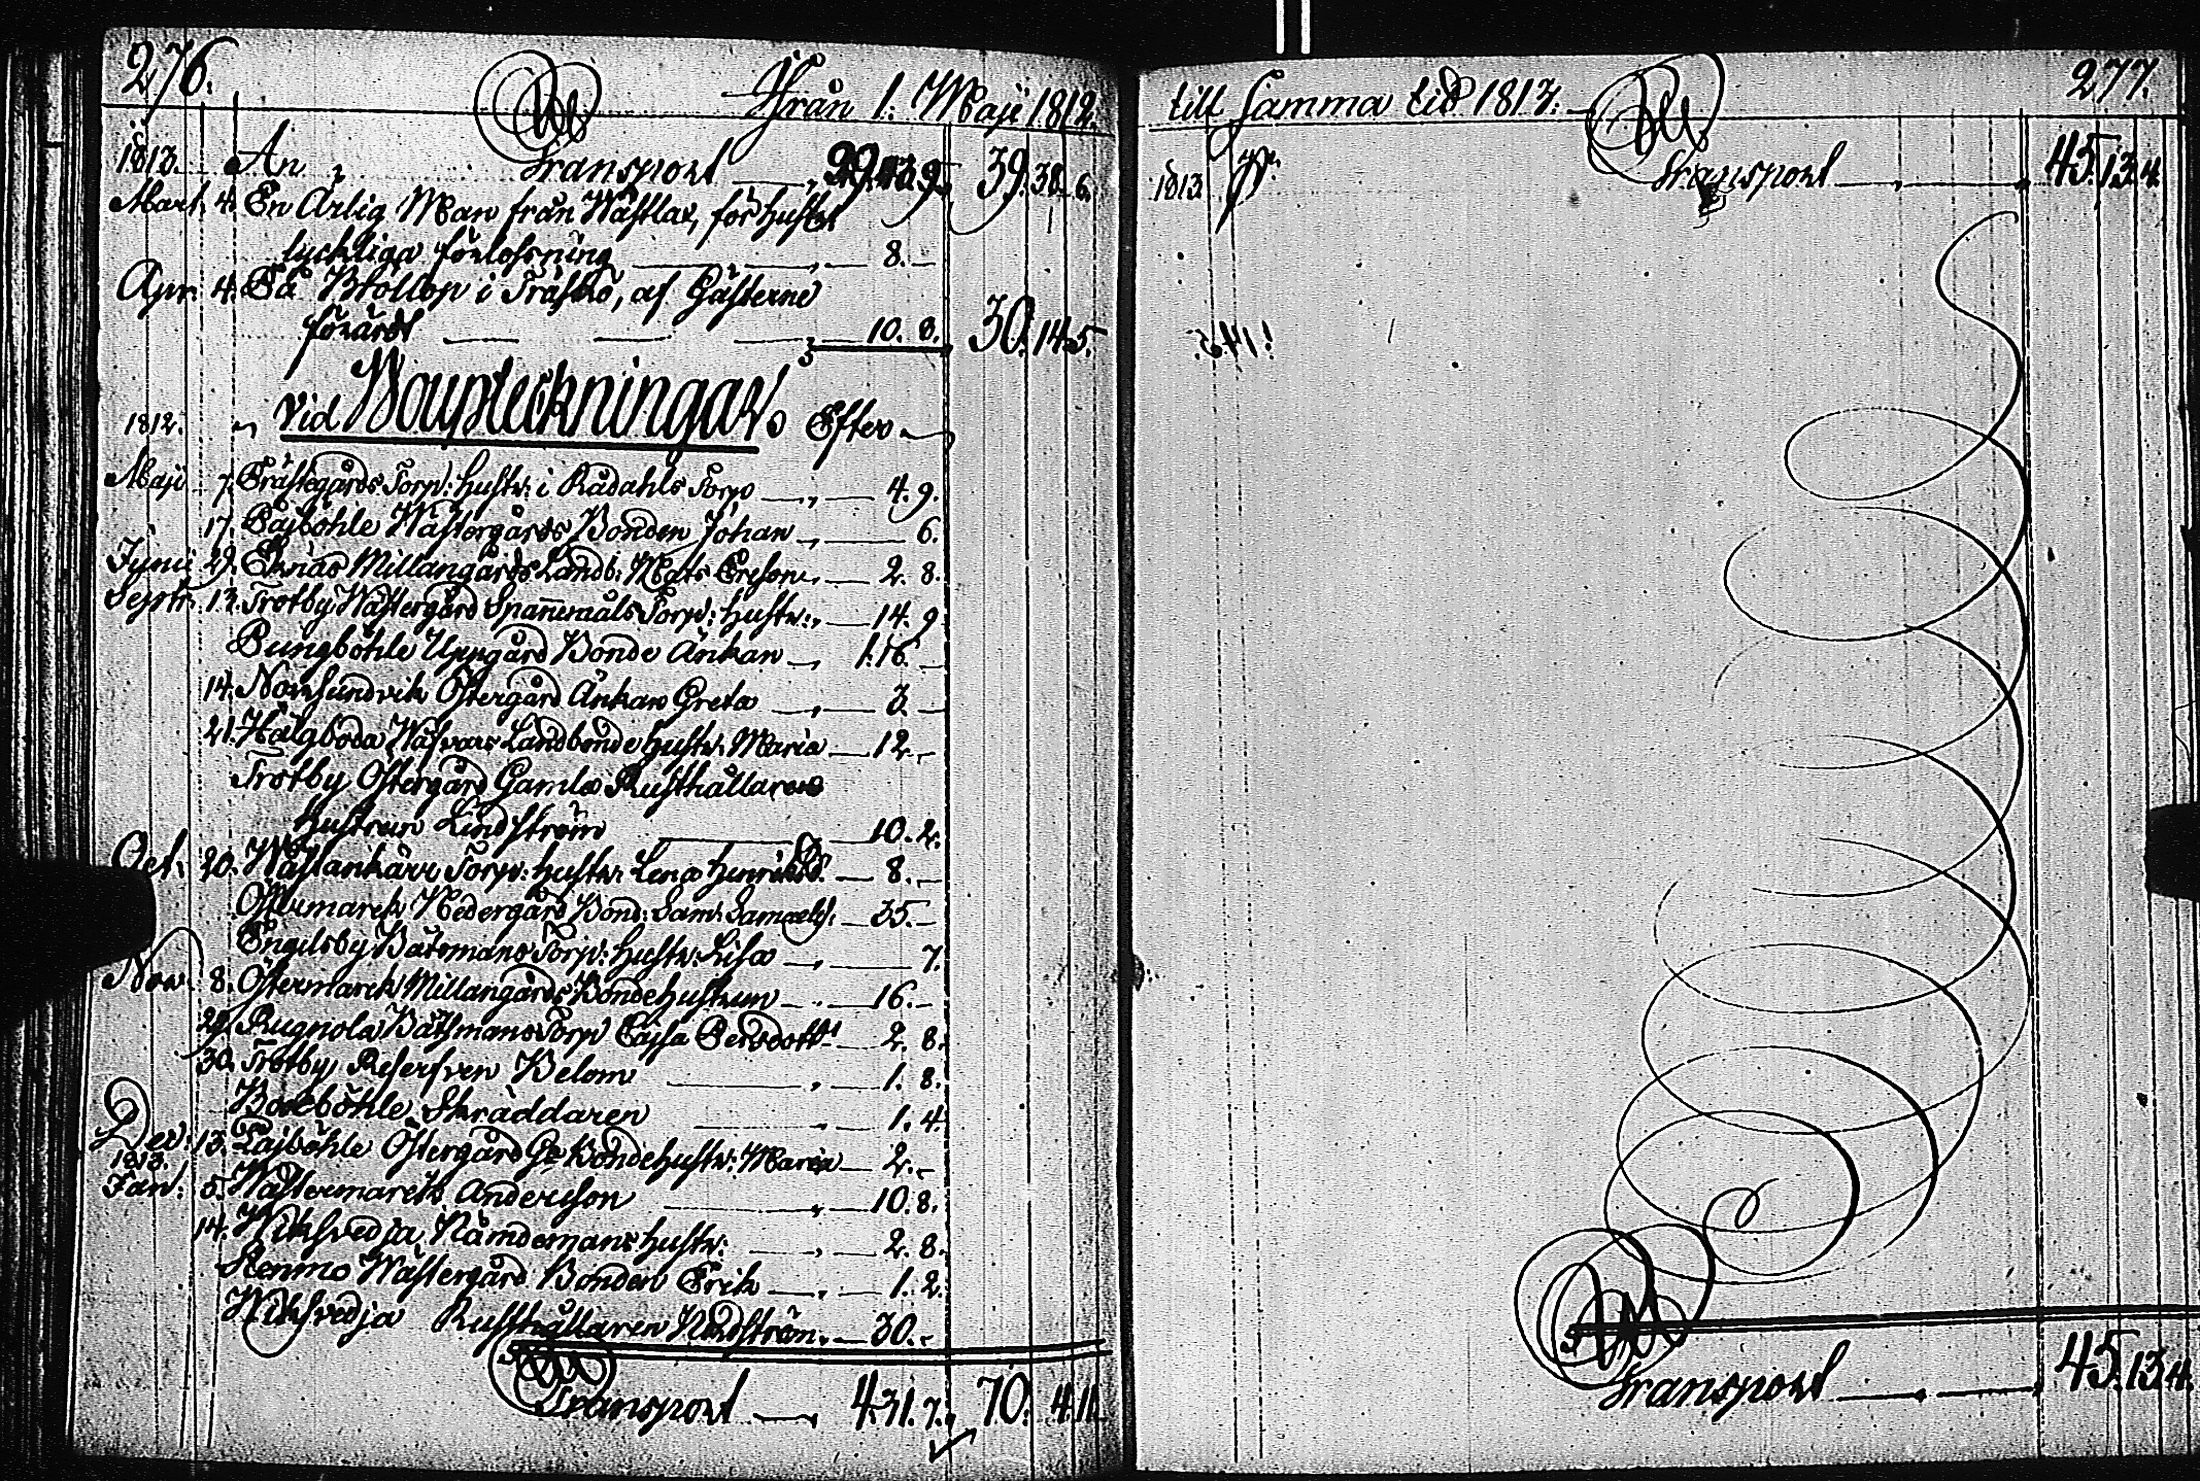 276.
Från 1. Maji 1812.
1813. An Transport 29.43.9. 39.38.6.
Mart. 4. En Ärlig Man från Wästlax, för hustrs
lyckliga förlossning 8.
Apr. 4. På Bröllop i Träskö, af Gästerne
förärdt 10. 8. 30. 14. 5.
1812. Vid Woupteckningar. Efter
Maji 7. Prästegårds Torp: hustr: i Rådahls Torp 4. 9.
17. Pajböhle Wästergårds Bonden Johan 6.
Junii 29. Eknäs Millangårds Landb: Mats Ersson 2. 8.
Septr. 13. Trotby Wästergård Spannmåls Torp: hustr: 14. 9
Bungböhle Uppgård Bonde Änkan 1.16.
14. Norrsundvik Östergård Änkan Greta 3.
21. Hälgboda Landbonde hustr. Maria 12.
Trotby Östergård Gamla Rusthållarens
Hustrun Lindström 10. 2.
Oct. 20. Wästankärr Torp: hustr. Lena Henriksd. 8.
Östermarck Nedergård Bond: Sam. Samuelss. 35.
Engelsby Båtsmans Torp: hustr: Lisa 7.
Nov. 8. Östermarck Millangårds Bondehustrun 16.
29. Rugnola Båtsmans Torp Cajsa Persdottr 2. 8.
30. Trotby Reserfven Belom 1. 8.
Boleböhle Skräddaren 1. 4
Dec. 13. Pajböhle Östergård Bondehustr: Maria 2.
1813.
Jan. 5. Wästermarck Andersson 10. 8.
14. Wiksvedja Nämdemans hustr: 2. 8.
Stenmo Wästergård Bonden Erik 1. 2.
Wiksvedja Rusthållaren Nordström. 30.
Transport 4.31.7. 70. 4.11.
till samma tid 1813. 277.
1813 Pr Transport 45.13.4.
Transport 45.13.4.